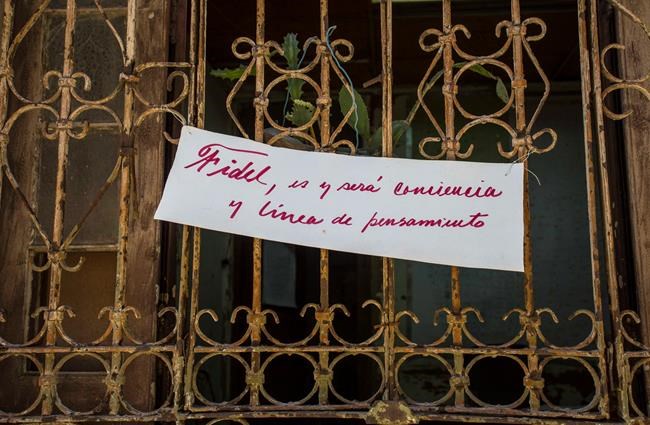 Fidel, es y será conciencia
y línea de pensamiento